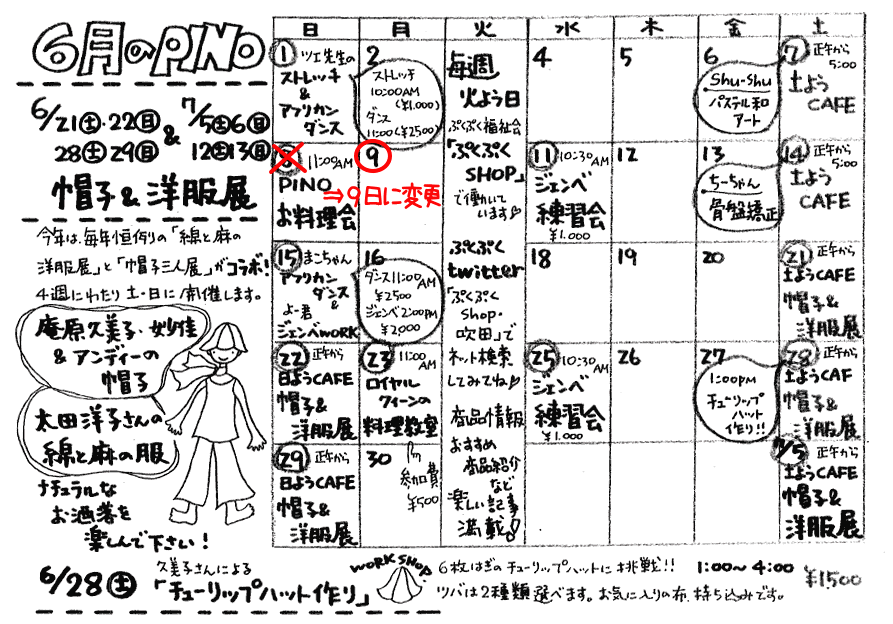 6月のPINO
6/21土・22日 & 7/5土6日
28土29日 12土13日
帽子&洋服展
今年は、毎年恒例の「綿と麻の
洋服展」と「帽子三人展」がコラボ!
4週にわたり土・日に開催します。
庵原久美子・妙佳
&アンディーの
帽子
太田洋子さんの
綿と麻の服
ナチュラルな
お洒落を
楽しんで下さい!
日 月 火 水 木 金 土
1 ツェ先生の
ストレッチ
&
アフリカン
ダンス
2
ストレッチ
10:00AM
(¥1,000)
ダンス
11:00(¥2500)
毎週
火よう日
ぷくぷく福祉会
「ぷくぷく
SHOP」
で働いて
います♪
ぷくぷく
twitter
「ぷくぷく
Shop・
吹田」で
ネット検索
してみてね♪
商品情報
おすすめ
商品紹介
など
楽しい記事
満載♪
4
5
6
Shu-Shu
パステル和
アート
7 正午から
5:00
土よう
CAFE
8 11:00AM
PINO
お料理会
9
⇒9日に変更
11 10:30AM
ジェンベ
練習会
¥1.000
12
13
ちーちゃん
骨盤矯正
14 正午から
5:00
土よう
CAFE
15 まこちゃん
アフリカン
ダンス
&
よー君
ジェンベWORK
16
ダンス11:00AM
¥2500
ジェンベ2:00PM
¥2,000
18
19
20
21 正午から
土ようCAFE
帽子&
洋服展
22 正午から
日ようCAFE
帽子&
洋服展
23 11:00AM
ロイヤル
クィーンの
料理教室
25 10:30AM
ジェンベ
練習会
¥1.000
26
27
1:00PM
チューリップ
ハット
作り!!
28 正午から
土ようCAF
帽子&
洋服展
29 正午から
日ようCAFE
帽子&
洋服展
30
参加費
¥500
7/5 正午から
土ようCAFE
帽子&
洋服展
6/28土 久美子さんによる
「チューリップハット作り」
WORK SHOP.
6枚はぎのチューリップハットに挑戦!! 1:00~4:00
ツバは2種類選べます。お気に入りの布、持ち込みです。 ¥1500